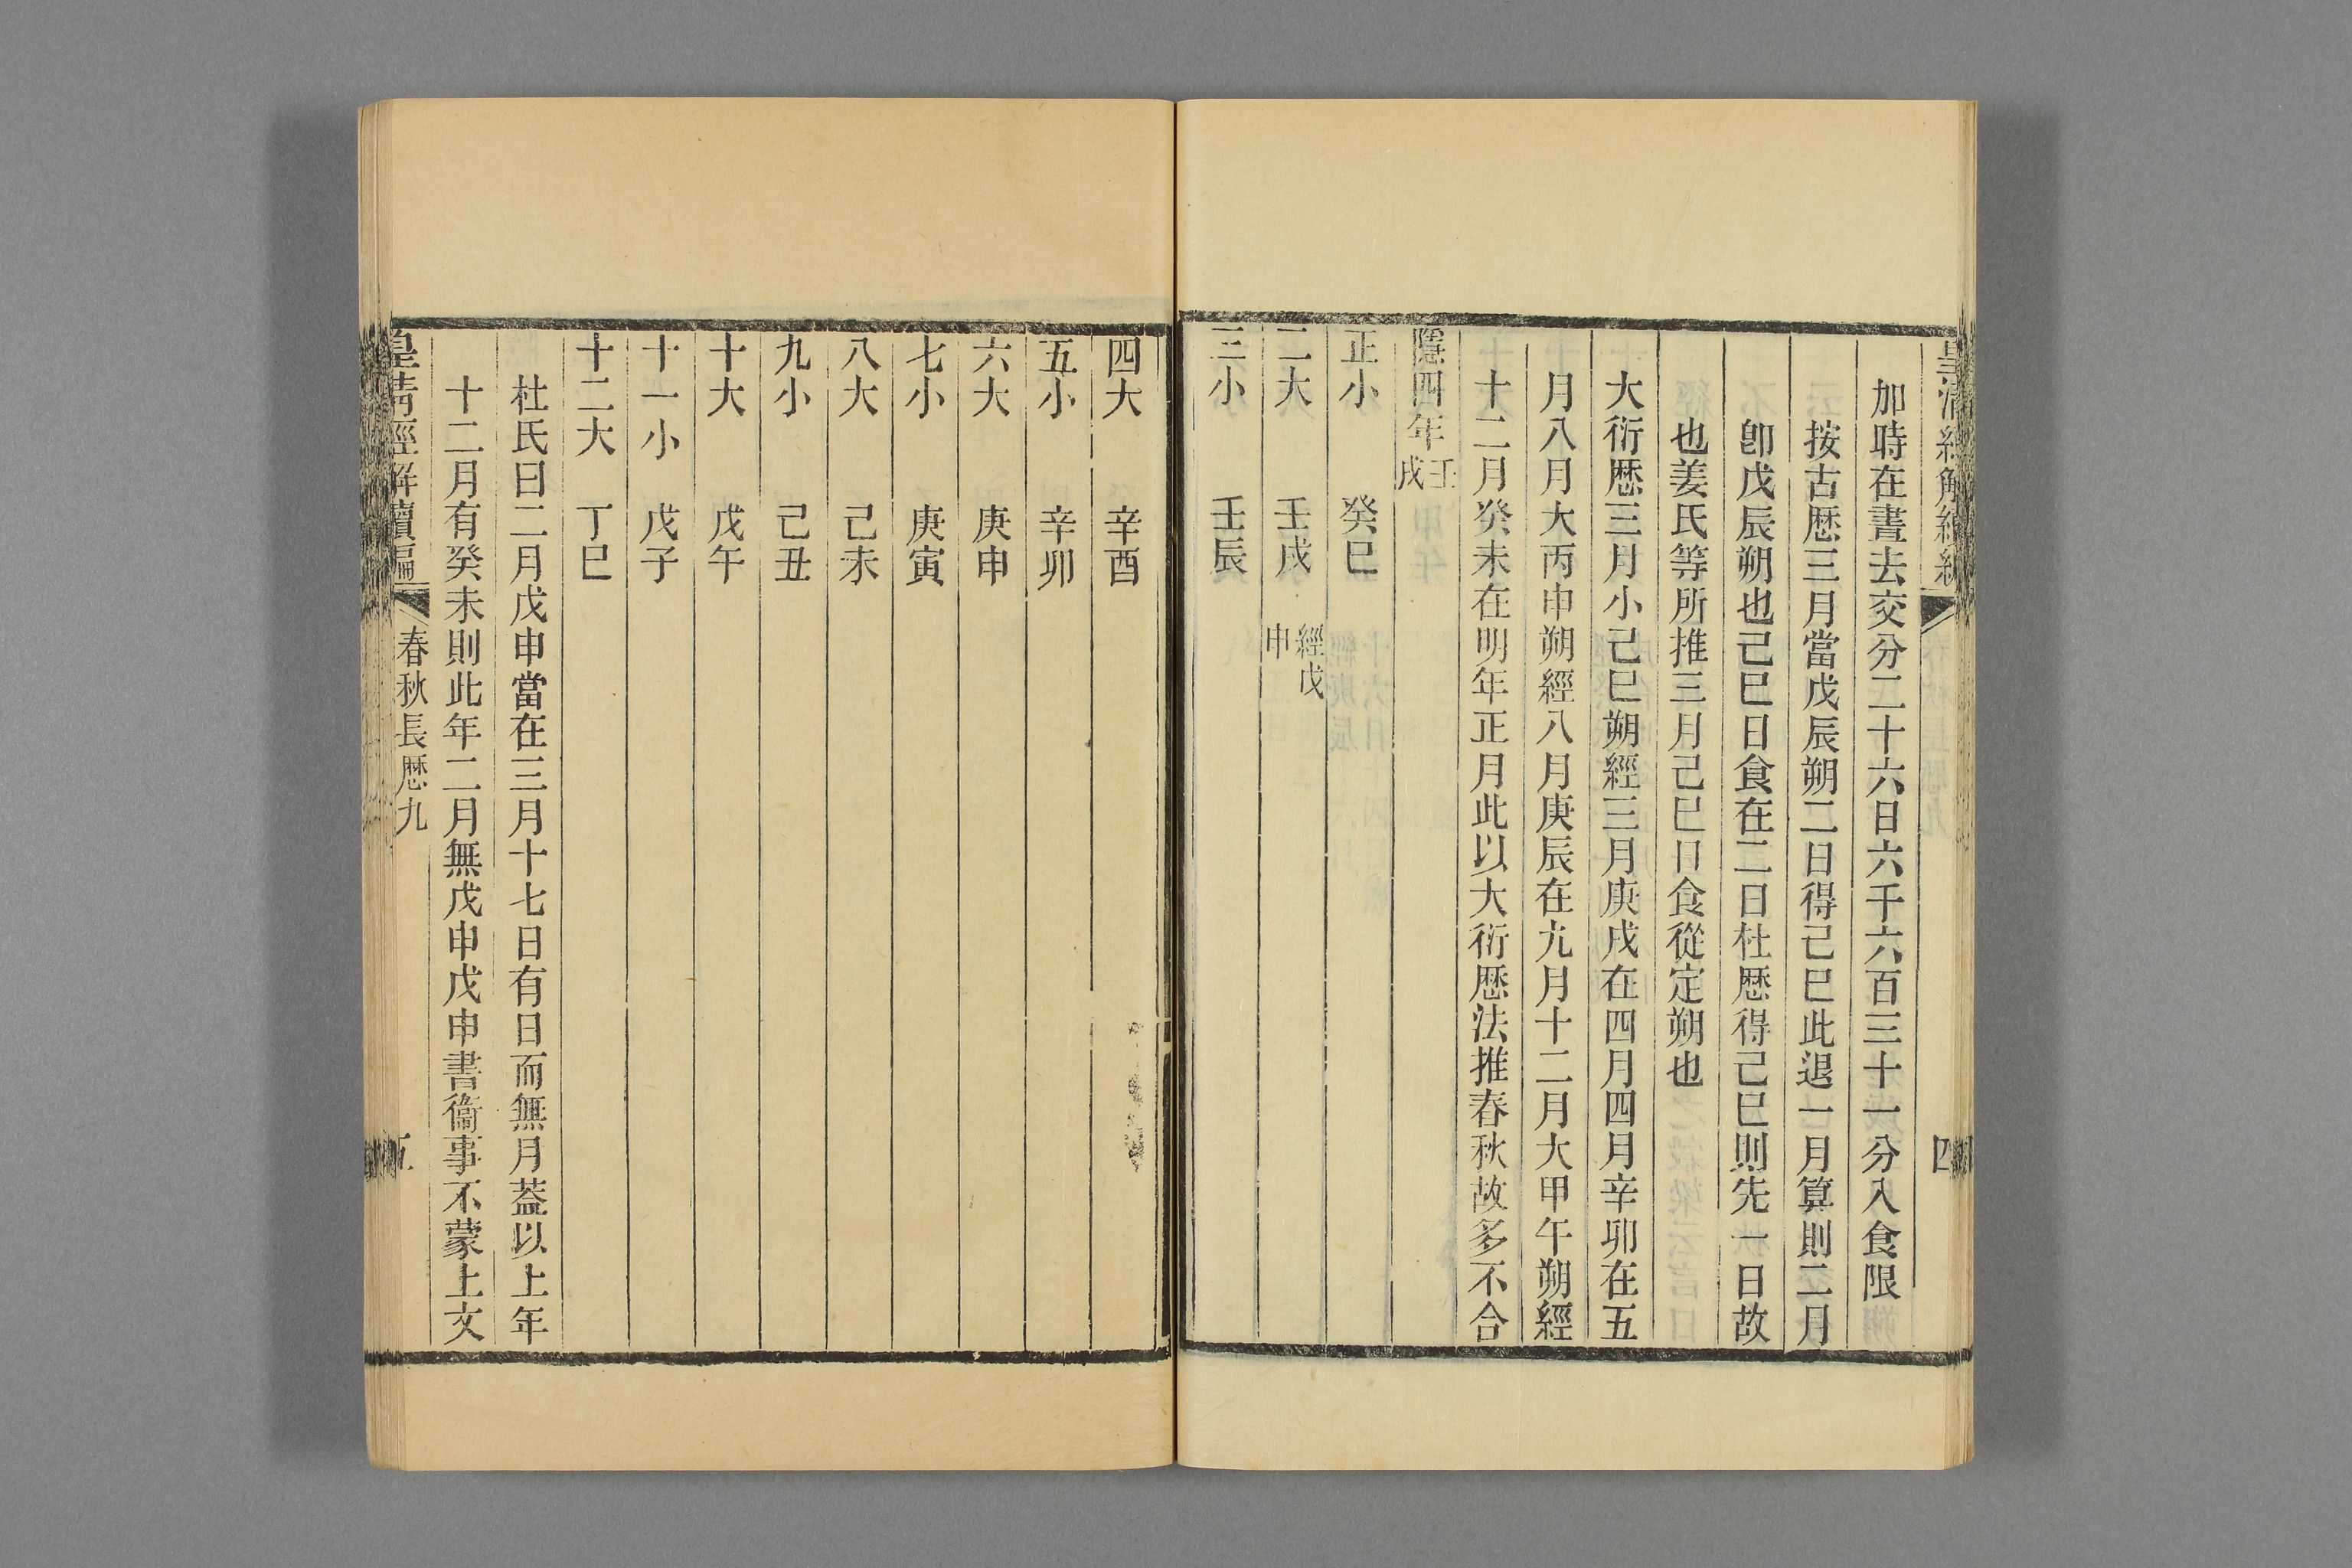 皇清經解續編
四
加時在晝去交分二十六日六千六百三十一分入食限
按古厯三月當戊辰朔二日得己巳此退一月算則二月
卽戊辰朔也己巳日食在二日杜厯得己巳則先一日故
也姜氏等所推三月己巳日食從定朔也
大衍厯三月小己巳朔經三月庚戌在四月四月辛卯在五
月八月大丙申朔經八月庚辰在九月十二月大甲午朔經
十二月癸未在明年正月此以大衍厯法推春秋故多不合
隱四年壬戌
正小 癸巳
二大 壬戌 經戊申
三小 壬辰
四大 辛酉
五小 辛卯
六大 庚申
七小 庚寅
八大 己未
九小 己丑
十大 戊午
十一小 戊子
十二大 丁巳
杜氏曰二月戊申當在三月十七日有日而無月葢以上年
十二月有癸未則此年二月無戊申戊申書衞事不蒙上文
皇清經解續編 春秋長厯九 五